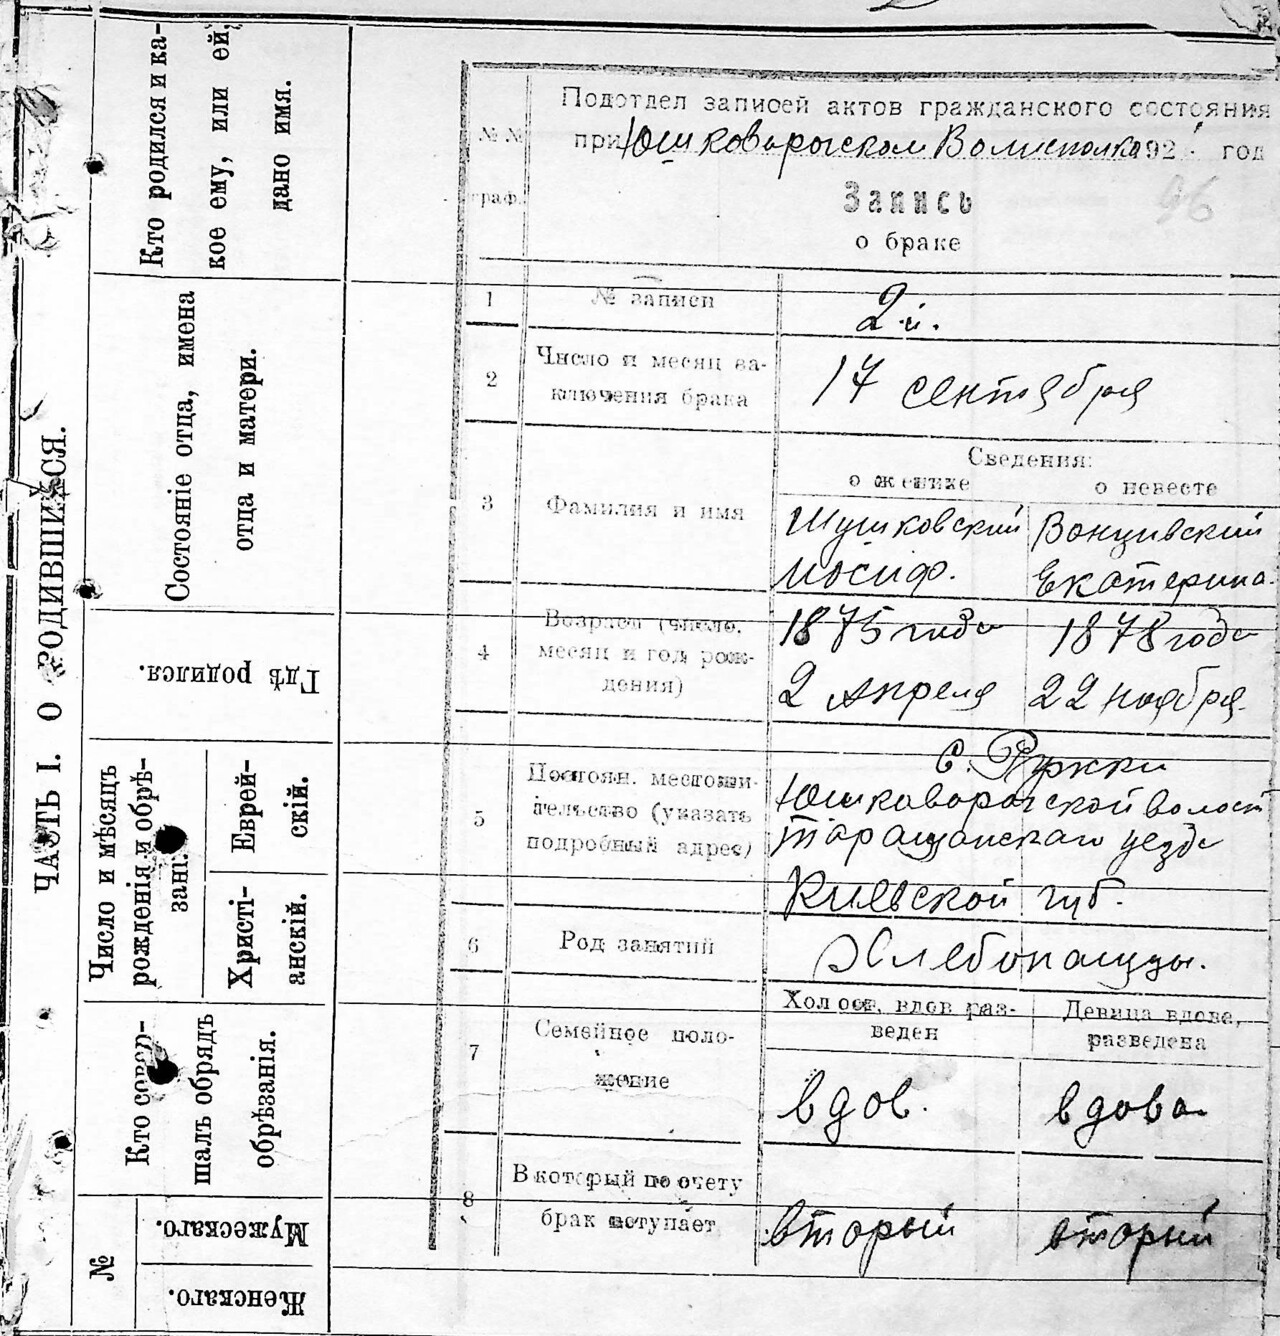 ЧАСТЬ I. О РОДИВШИХСЯ.
Кто родился и ка-
кое ему, или ей,
дано имя.
Состояніе отца, имена
отца и матери.
Гдѣ родился.
Число и мѣсяцъ
рожденія и обрѣ-
зані.
Еврей-
скій.
Христі-
анскій.
Кто совер-
шалъ обрядъ
обрѣзанія.
№
Мужескаго.
Женскаго.
№№
граф.
Подотдел записей актов гражданского состояния
при Юшковорогском Волисполк 192 год
96
Запись
о браке
1
№ записи
2-й.
2
Число и месяц за-
ключения брака
17 сентября
Сведения:
о женихе
о невесте
3
Фамилия и имя
Шушковский
Иосиф.
Вонцивский
Екатерина.
4
Возраст (число,
месяц и год рож-
дения)
1875 года
2 апреля
1878 года
22 ноября
5
Постоян. местожи-
тельство (указать
подробный адрес)
с.
Юшковорогской волост
Таращанскаго уезда
Киевской губ.
6
Род занятий
Хлебопашцы.
7
Семейное поло-
жение
Холост, вдов, раз-
веден
Девица вдова,
разведена
вдов.
вдова
8
В который по счету
брак вступает
вторый
вторый